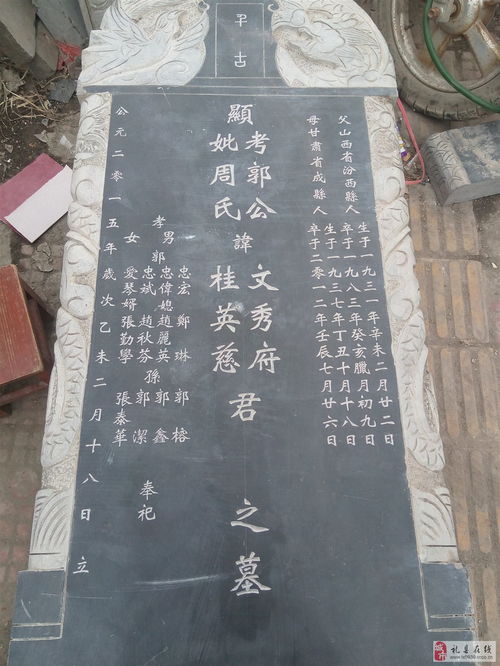 千古
父山西省汾西縣人
生于一九三一年辛未二月廿二日
卒于一九八三年癸亥臘月初九日
母甘肅省成縣人
生于一九三七年丁丑十月十八日
卒于二零一二年壬辰七月廿六日
顯
考郭公
妣周氏
諱
文秀府
桂英慈
君之墓
忠宏 鄭琳 郭榕
孝男郭忠偉媳趙麗英孫郭鑫
忠斌 趙秋芬 郭潔
女愛琴婿張勤學 張泰華
奉祀
公元二零一五年歲次乙未二月十八日立
城市
礼县在线